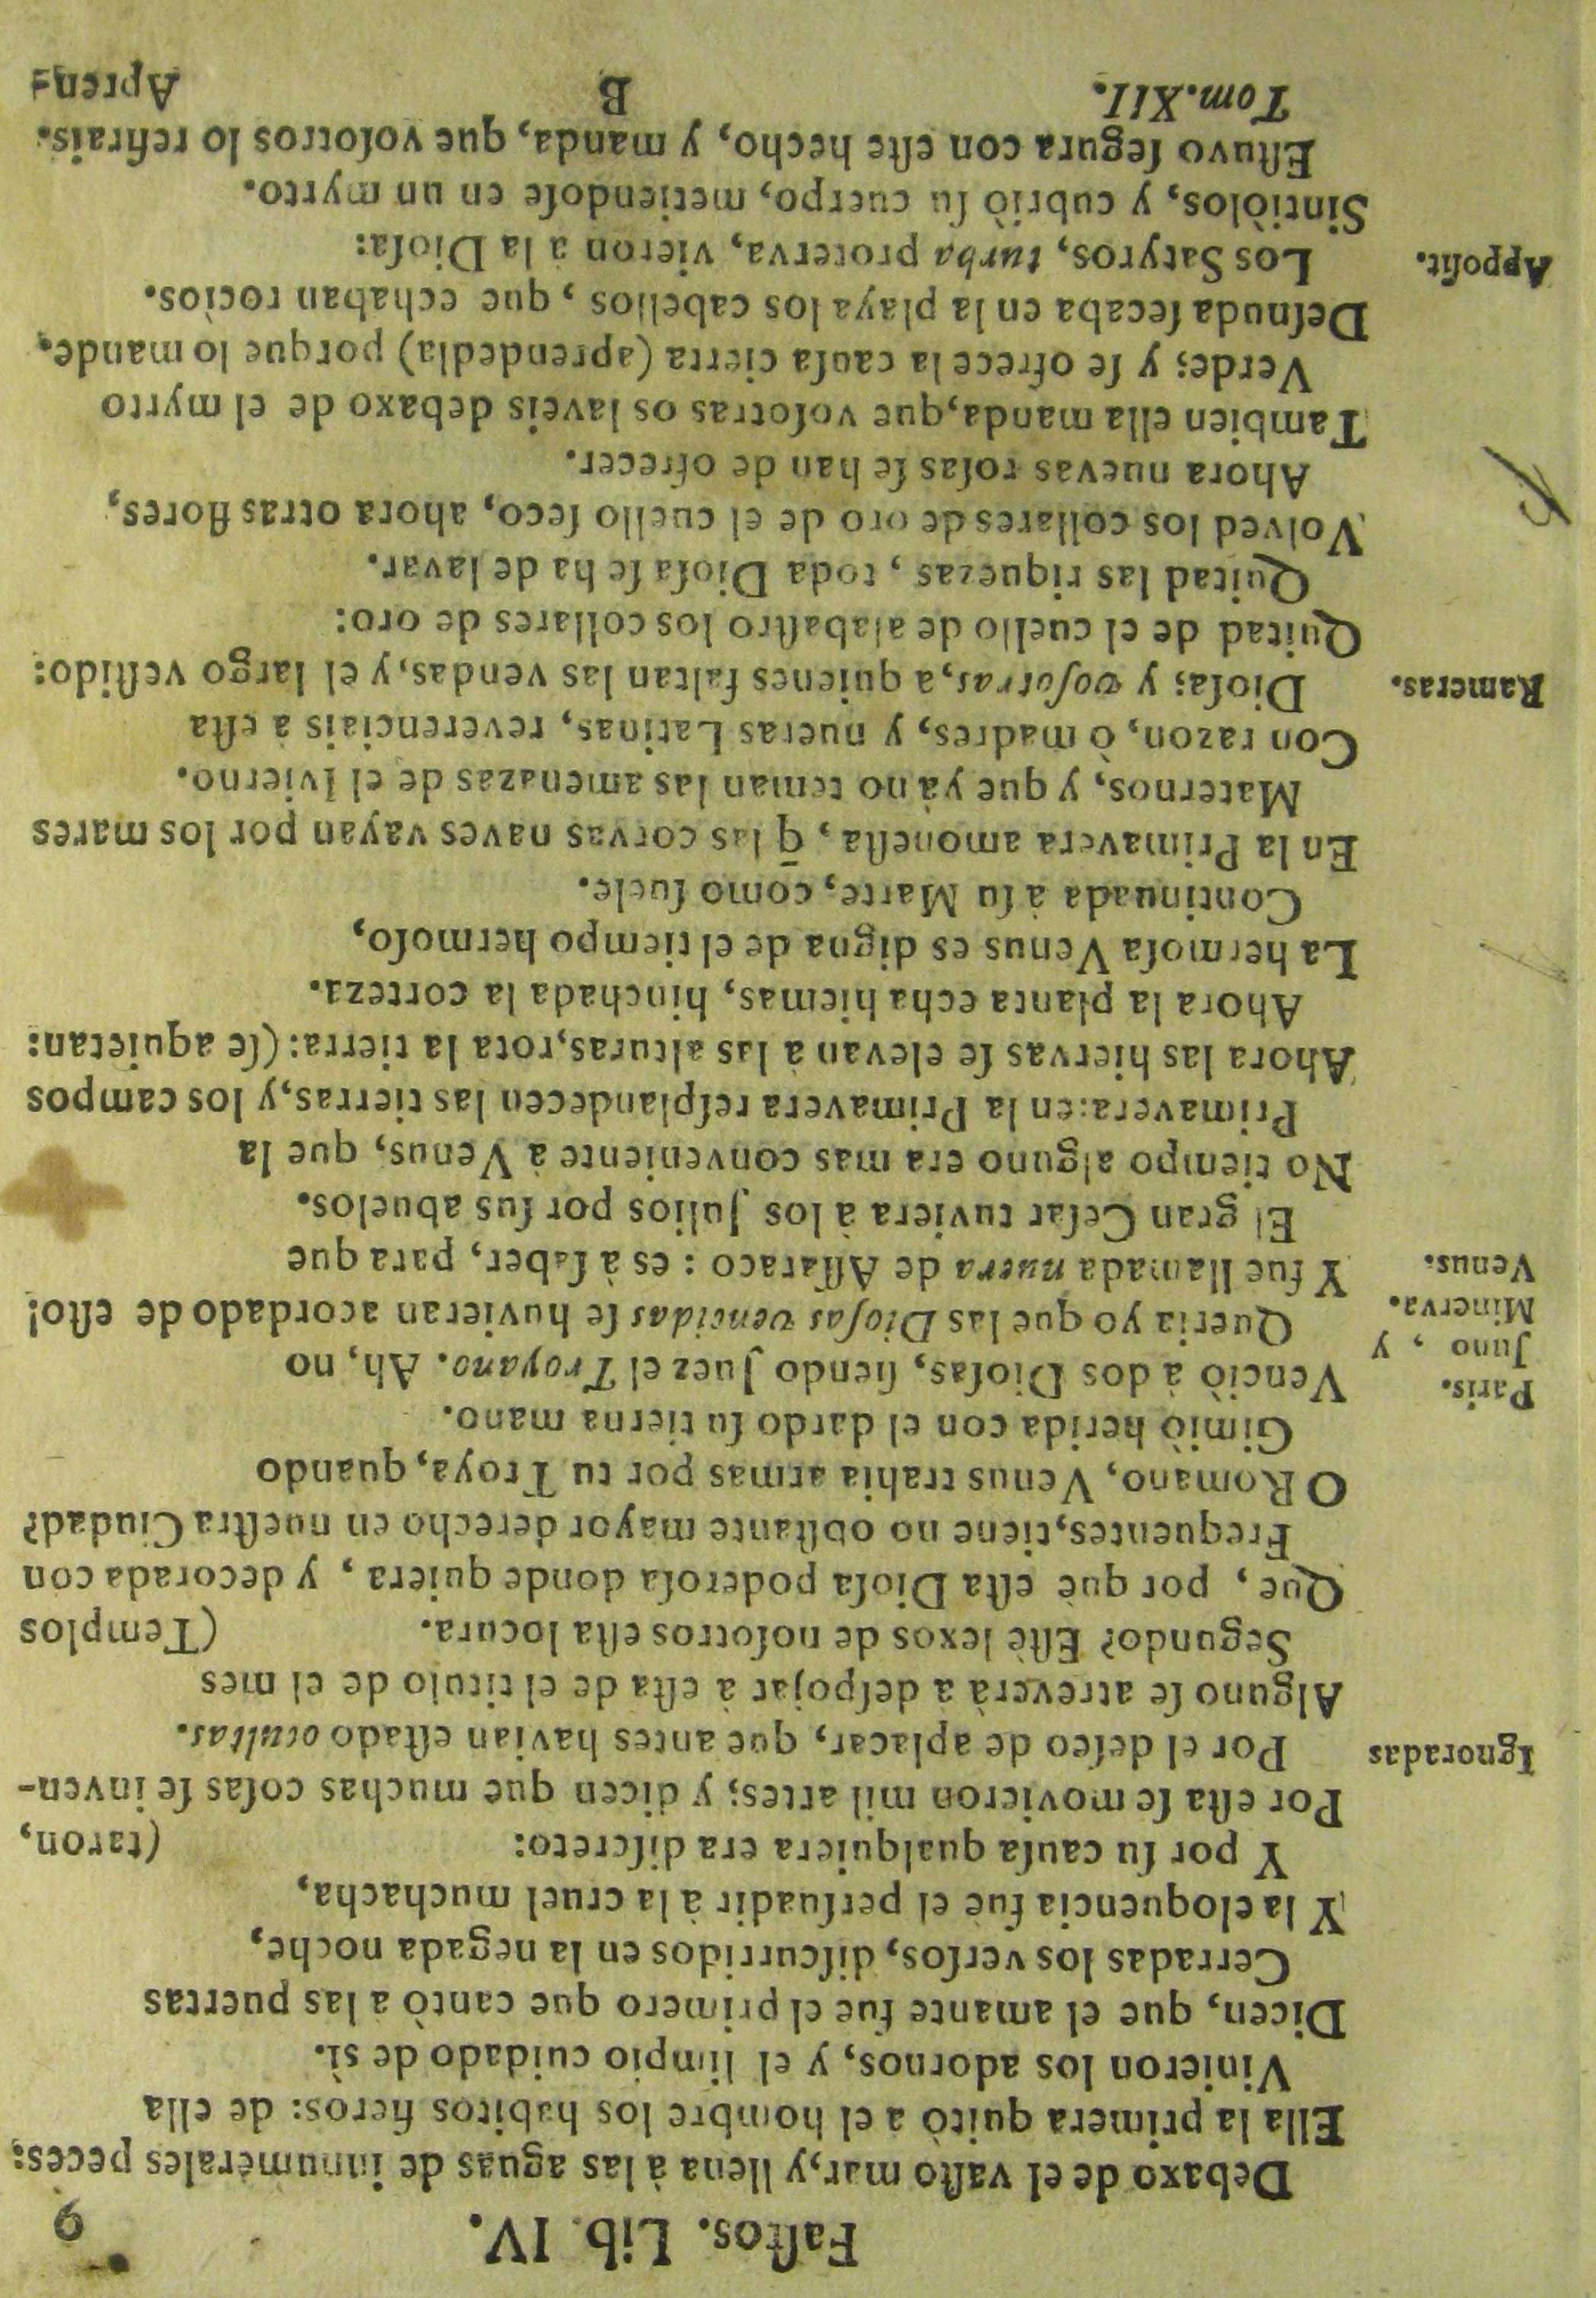 Faſtos. Lib. IV. 9
Debaxo de el vaſto mar, y llena à las aguas de innumèrales peces:
Ella la primera quitò a el hombre los habitos fieros: de ella
Vinieron los adornos, y el limpio cuidado de sì.
Dicen, que el amante fue el primero que cantò a las puertas
Cerradas los verſos, diſcurridos en la negada noche,
Y la eloquencia fuè el perſuadir à la cruel muchacha,
Y por ſu cauſa qualquiera era diſcreto: (taron,
Por eſta ſe movieron mil artes; y dicen que muchas coſas ſe inven-
Ignoradas Por el deſeo de aplacar, que antes havian eſtado ocultas.
Alguno ſe atreverà a deſpojar à eſta de el titulo de el mes
Segundo? Eſtè lexos de noſotros eſta locura. (Templos
Que, por què eſta Dioſa poderoſa donde quiera, y decorada con
Frequentes, tiene no obſtante mayor derecho en nueſtra Ciudad?
O Romano, Venus trahia armas por tu Troya, quando
Gimiò herida con el dardo ſu tierna mano.
Paris. Venciò à dos Dioſas, ſiendo Juez el Troyano. Ah, no
Juno, y Minerva. Queria yo que las Dioſas vencidas ſe huvieran acordado de eſto!
Venus. Y fue llamada nuera de Aſſaraco: es à ſaber, para que
El gran Ceſar tuviera à los Julios por ſus abuelos.
No tiempo alguno era mas conveniente à Venus, que la
Primavera: en la Primavera reſplandecen las tierras, y los campos
Ahora las hiervas ſe elevan à las alturas, rota la tierra: (ſe aquietan:
Ahora la planta echa hiemas, hinchada la corteza.
La hermoſa Venus es digna de el tiempo hermoſo,
Continuada à ſu Marte, como ſuele.
En la Primavera amoneſta, q̄ las corvas naves vayan por los mares
Maternos, y que yà no teman las amenazas de el Ivierno.
Con razon, ò madres, y nueras Latinas, reverenciais à eſta
Rameras. Dioſa; y voſotras, a quienes faltan las vendas, y el largo veſtido:
Quitad de el cuello de alabaſtro los collares de oro:
Quitad las riquezas, toda Dioſa ſe ha de lavar.
Volved los collares de oro de el cuello ſeco, ahora otras flores,
Ahora nuevas roſas ſe han de ofrecer.
Tambien ella manda, que voſotras os laveis debaxo de el myrto
Verde; y ſe ofrece la cauſa cierta (aprendedla) porque lo mande.
Deſnuda ſecaba en la playa los cabellos, que echaban rocìos.
Appoſit. Los Satyros, turba proterva, vieron à la Dioſa:
Sintiòlos, y cubriò ſu cuerpo, metiendoſe en un myrto.
Eſtuvo ſegura con eſte hecho, y manda, que voſotros lo refirais.
Tom. XII. B Apren-